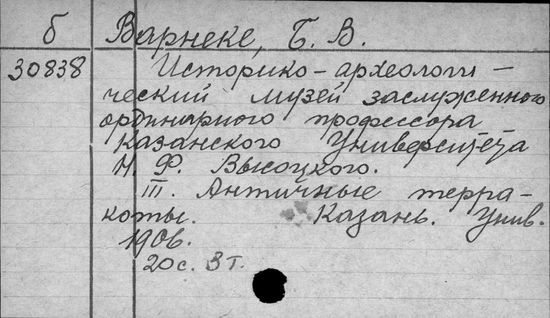 б Варнеке, Б. В.
30838 Историко-археологи-
ческий музей заслуженного
ординарного профессора
Казанского Университета
Н. Ф. Высоцкого.
III. Античные терра-
коты. Казань. Унив.
1906.
20с. 3т.